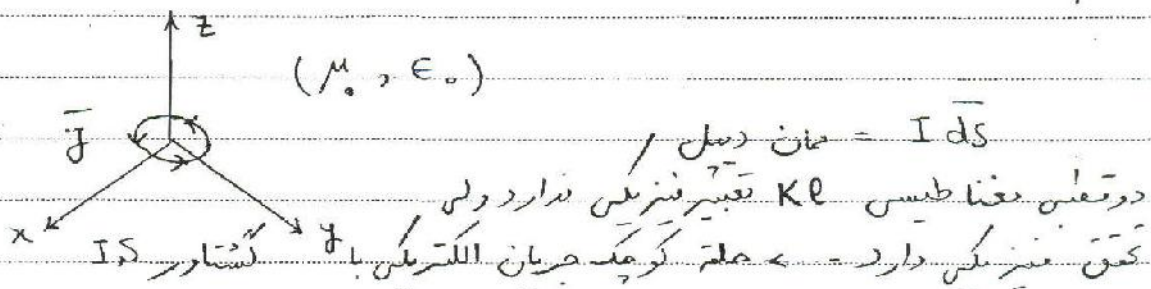 z
(μ₀ , ϵ₀)
J̄
ممان دیپل = I d̄s
دوقطبی مغناطیسی Kl تعبیر فیزیکی ندارد ولی
x
y
تحقق فیزیکی دارد -> حلقه کوچک جریان الکتریکی با گشتاور IS